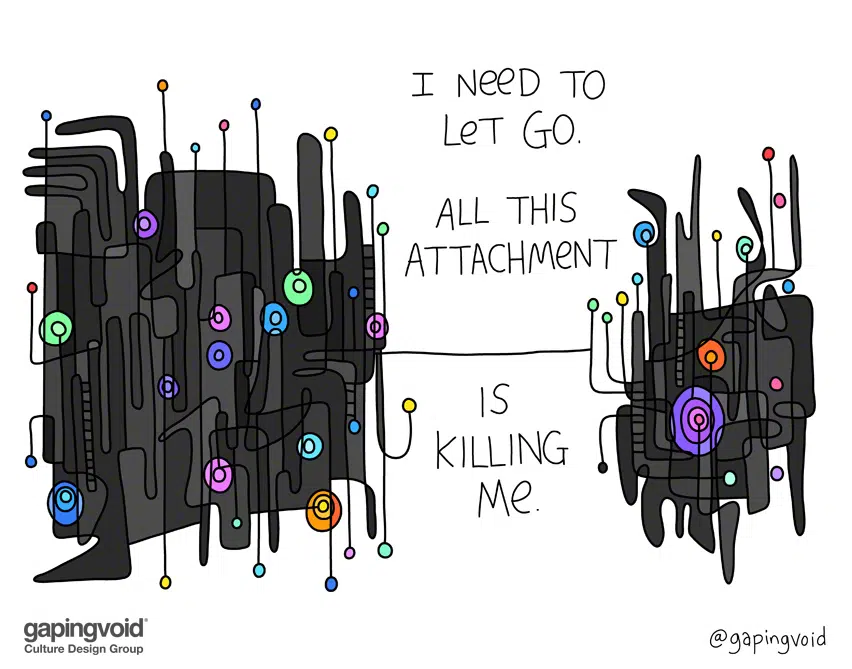 I NeeD TO
LeT GO.
ALL THIS
ATTACHMeNT
IS
KILLING
Me.
gapingvoid®
Culture Design Group
@gapingvoid